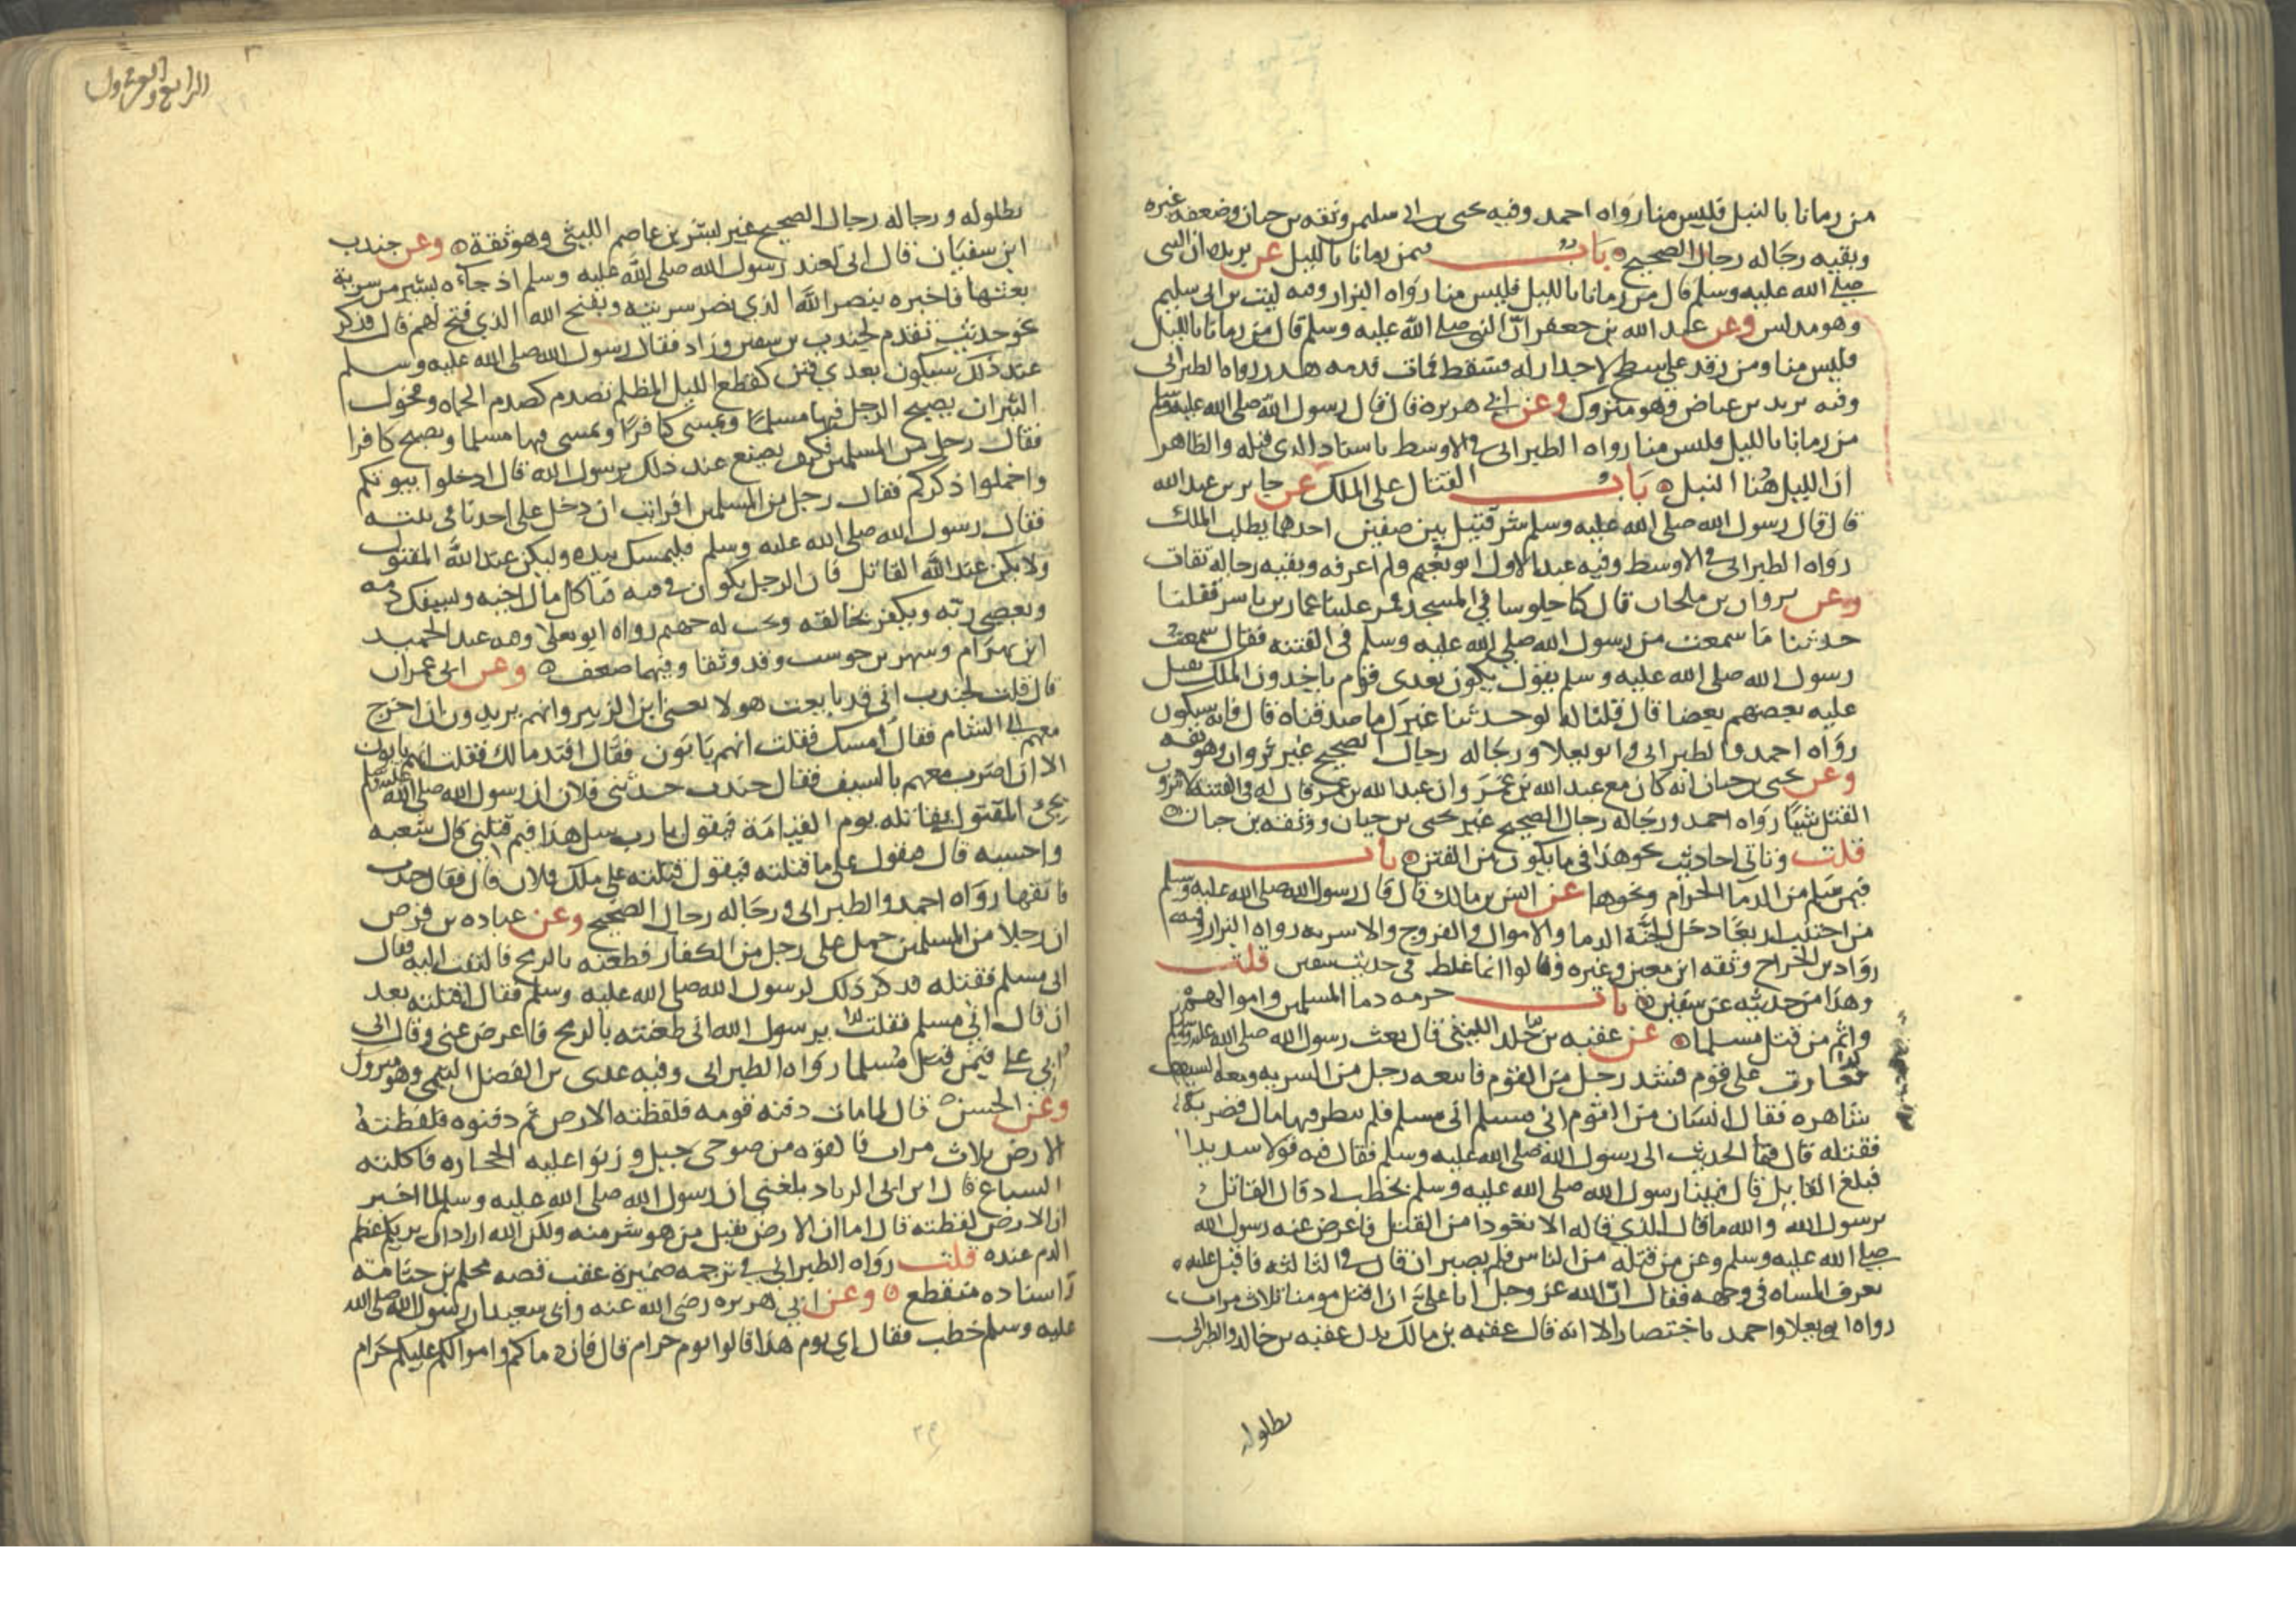 من رمانا بالنبل فليس منا رواه احمد وفيه يحيى بن ابى سليم وثقه بن حبان وضعفه غيره
وبقيه رجاله رجال الصحيح باب فيمن رمانا بالليل عن بريده ان النبى
صلى الله عليه وسلم قال من رمانا بالليل فليس منا رواه البزار وفيه ليث بن ابى سليم
وهو مدلس وعن عبد الله بن جعفر ان النبى صلى الله عليه وسلم قال من رمانا بالليل
فليس منا ومن رقد على سطح لا جدار له فسقط فمات فدمه هدر رواه الطبرانى
وفيه يزيد بن عياض وهو متروك وعن ابى هريره قال قال رسول الله صلى الله عليه وسلم
من رمانا بالليل فليس منا رواه الطبرانى فى الاوسط باسناد الذى قبله والظاهر
ان الليل هنا النبل باب القتال على الملك عن جابر بن عبد الله
قال قال رسول الله صلى الله عليه وسلم شر قتيل بين صفين احدهما يطلب الملك
رواه الطبرانى فى الاوسط وفيه عبد الاول ابو نعيم ولم اعرفه وبقيه رجاله ثقات
وعن ثروان بن ملحان قال كنا جلوسا فى المسجد فمر علينا عمار بن ياسر فقلنا
حدثنا ما سمعت من رسول الله صلى الله عليه وسلم فى الفتنه فقال سمعت
رسول الله صلى الله عليه وسلم يقول يكون بعدى قوم ياخذون الملك يقتل
عليه بعضهم بعضا قال قلنا له لو حدثنا غيرك ما صدقناه قال فانه سيكون
رواه احمد والطبرانى وابو يعلا ورجاله رجال الصحيح غير ثروان وهو ثقه
وعن يحيى بن حبان انه كان مع عبد الله بن عمر وان عبد الله بن عمر قال له فى الفتنه لا ترون
القتل شيئا رواه احمد ورجاله رجال الصحيح غير يحيى بن حبان ووثقه بن حبان
قلت وتاتى احاديث نحو هذا فى ما يكون من الفتن باب
فيمن سلم من الدما الحرام ونحوها عن انس بن مالك قال قال رسول الله صلى الله عليه وسلم
من اجتنب اربعا دخل الجنة الدما والاموال والفروج والاسربه رواه البزار وفيه
رواد بن الجراح وثقه ابن معين وغيره وقالوا انما غلط فى حديث سفين قلت
وهذا من حديثه عن سفين باب حرمه دما المسلمين واموالهم
واثم من قتل مسلما عن عقبه بن خلد الليثى قال بعث رسول الله صلى الله عليه وسلم
فغارت على قوم فشد رجل من القوم فاتبعه رجل من السريه ومعه السيف
شاهره فقال انسان من القوم انى مسلم انى مسلم فلم ينظر فيها قال فضربه
فقتله قال فنما الحديث الى رسول الله صلى الله عليه وسلم فقال فيه قولا سديدا
فبلغ القاتل قال فبينا رسول الله صلى الله عليه وسلم يخطب اذ قال القاتل
يرسول الله والله ما قال الذي قاله الا تعوذا من القتل فاعرض عنه رسول الله
صلى الله عليه وسلم وعن من قتله من الناس فلم يصبر ان قال فى الثالثه فاقبل عليه
تعرف المساه فى وجهه فقال ان الله عز وجل ابا على ان اقتل مومنا ثلاث مرات
رواه ابو يعلا واحمد باختصار الا انه قال عقبه بن مالك بدل عقبه بن خالد والطبرانى
بطلوله
الرابع والعشرون
بطلوله ورجاله رجال الصحيح غير بشر بن عاصم الليثى وهو ثقة وعن جندب
ابن سفيان قال انى لعند رسول الله صلى الله عليه وسلم اذ جاءه بشير من سرية
بعثها فاخبره بنصر الله الذي نصر سريته وبفتح الله الذي فتح لهم قال فذكر
نحو حديث تقدم لجندب بن سفين وزاد فقال رسول الله صلى الله عليه وسلم
عند ذلك سيكون بعدي فتن كقطع الليل المظلم تصدم كصدم الحماه وفحول
الثيران يصبح الرجل فيها مسلما ويمسى كافرا ويمسى فيها مسلما ويصبح كافرا
فقال رجل من المسلمين فكيف يصنع عند ذلك يرسول الله قال ادخلوا بيوتكم
واخملوا ذكركم فقال رجل من المسلمين افرايت ان دخل على احدنا فى بيته
فقال رسول الله صلى الله عليه وسلم فليمسك بيده وليكن عبد الله المقتول
ولا يكن عبد الله القاتل فان الرجل يكون فى فيه فياكل مال اخيه ويسفك دمه
ويعصى ربه ويكفر بخالقه وتجب له جهنم رواه ابو يعلا وفيه عبد الحميد
ابن بهرام وشهر بن حوشب وقد وثقا وفيهما ضعف وعن ابى عمران
قال قلت لجندب انى قد بايعت هولا يعنى ابن الزبير وانهم يريدون ان اخرج
معهم الى الشام فقال امسك فقلت انهم يابون فقال افتد مالك فقلت انهم يابون
الا ان اضرب معهم بالسيف فقال جندب حدثنى فلان ان رسول الله صلى الله عليه وسلم
يجئ المقتول بقاتله يوم القيامة فيقول يا رب سل هذا فيم قتلنى قال شعبه
واحسبه قال فيقول على ما قتلته فيقول قتلته على ملك فلان قال فقال جندب
فاتقها رواه احمد والطبرانى ورجاله رجال الصحيح وعن عباده بن قرص
ان رجلا من المسلمين حمل على رجل من الكفار فطعنه بالرمح فالتفت اليه فقال
انى مسلم فقتله فذكر ذلك لرسول الله صلى الله عليه وسلم فقال اقتلته بعد
ان قال انى مسلم فقلت يرسول الله انى طعنته بالرمح فاعرض عنى وقال ابى
ابي على فيمن قتل مسلما رواه الطبرانى وفيه عدى بن الفضل التيمى وهو متروك
وعن الحسن قال لما مات دفنه قومه فلفظته الارض ثم دفنوه فلفظته
الارض ثلاث مرات فالقوه من ضوحى جبل ورموا عليه الحجاره فاكلته
السباع قال ابن ابى الزناد بلغنى ان رسول الله صلى الله عليه وسلم لما اخبر
ان الارض لفظته قال اما ان الارض تقبل من هو شر منه ولكن الله اراد ان يريكم عظم
الدم عنده قلت رواه الطبرانى فى ترجمه ضميرة عقب قصه محلم بن جثامة
واسناده منقطع وعن ابي هريره رضى الله عنه وابى سعيد ان رسول الله صلى الله
عليه وسلم خطب فقال اي يوم هذا قالوا يوم حرام قال فان دماكم واموالكم عليكم حرام